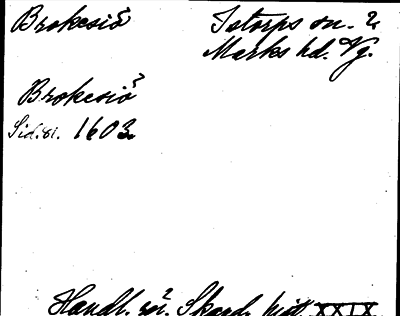 Brokesiö Istorps sn. 2
Marks hd. Vg.
Brokesiö
1603
Handl. rör. Skand. hist. XXIX